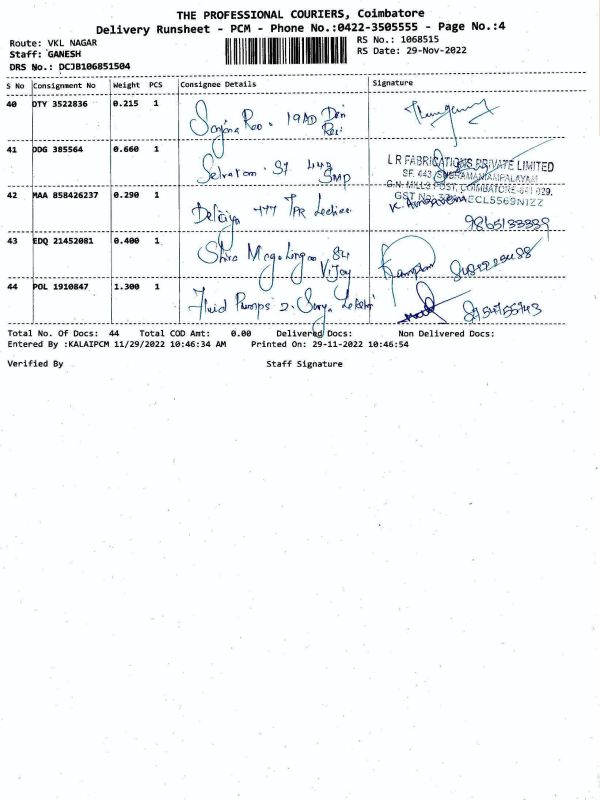 THE PROFESSIONAL COURIERS, Coimbatore
Delivery Runsheet - PCM - Phone No.:0422-3505555 - Page No.:4
Route: VKL NAGAR RS No.: 1068515
Staff: GANESH RS Date: 29-Nov-2022
DRS No.: DCJB106851504
S No Consignment No Weight PCS Consignee Details Signature
40 DTY 3522836 0.215 1
Sanjana Roo. 19AD
41 DDG 385564 0.660 1
Selvaram
L R FABRICATIONS PRIVATE LIMITED
SF. 443 SUBRAMANIAMPALAYAM
G.N. MILLS POST, COIMBATORE-641 029.
42 MAA 858426237 0.290 1
777
9865133339
43 EDQ 21452081 0.400 1
Shiva 84
Vijay
44 POL 1910847 1.300 1
Fluid Pumps 2. Surya
8754755743
Total No. Of Docs: 44 Total COD Amt: 0.00 Delivered Docs: Non Delivered Docs:
Entered By :KALAIPCM 11/29/2022 10:46:34 AM Printed On: 29-11-2022 10:46:54
Verified By Staff Signature